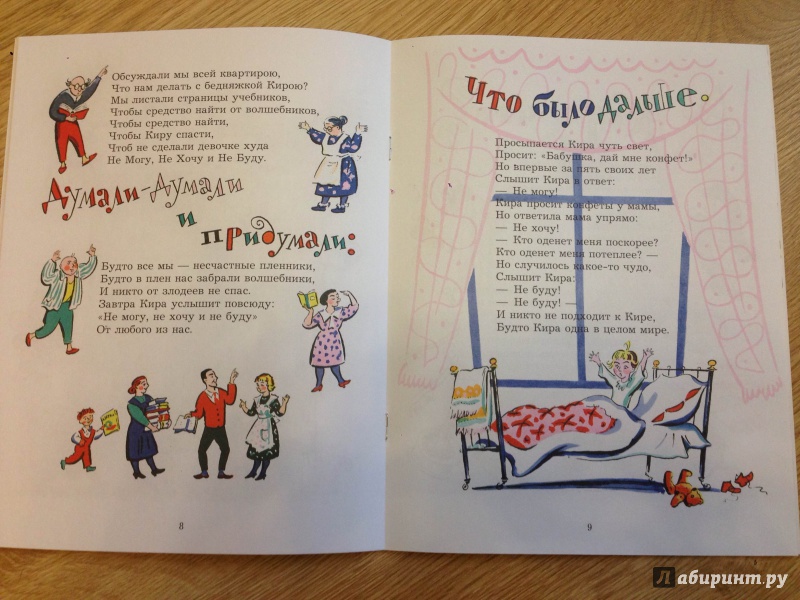 Обсуждали мы всей квартирою,
Что нам делать с бедняжкой Кирою?
Мы листали страницы учебников,
Чтобы средство найти от волшебников,
Чтобы средство найти,
Чтобы Киру спасти,
Чтоб не сделали девочке худа
Не Могу, Не Хочу и Не Буду.
Думали-думали
и
придумали:
Будто все мы — несчастные пленники,
Будто в плен нас забрали волшебники,
И никто от злодеев не спас.
Завтра Кира услышит повсюду:
«Не могу, не хочу и не буду»
От любого из нас.
8
Что было дальше.
Просыпается Кира чуть свет,
Просит: «Бабушка, дай мне конфет!»
Но впервые за пять своих лет
Слышит Кира в ответ:
— Не могу!
Кира просит конфеты у мамы,
Но ответила мама упрямо:
— Не хочу!
— Кто оденет меня поскорее?
Кто оденет меня потеплее? —
Но случилось какое-то чудо,
Слышит Кира:
— Не буду!
— Не буду! —
И никто не подходит к Кире,
Будто Кира одна в целом мире.
9
Лабиринт.ру